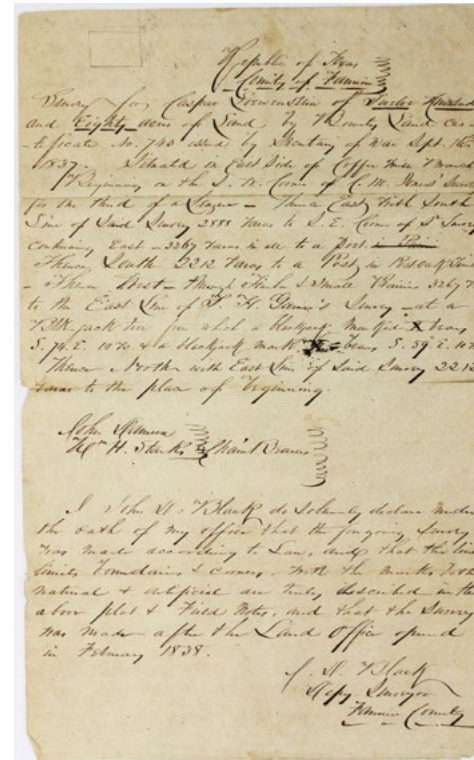 Republic of Texas
County of Fannin
Survey for Caspar Loewenstein of Twelve Hundred
and Eighty acres of Land by Bounty Land cer-
-tificate No. 740 issued by Secretary of War Sept. 16th
1837. Situated in East Side of Coffee Mill
Beginning on the S. W. Corner of C. M. Survey
for one third of a League - Thence East with South
Line of Said Survey 2888 varas to S. E. Corner of Sd Survey
continuing East - 3267 varas in all to a post
Thence South 2212 varas to a Post in Postoak
- Thence West - through Timber & Small Prairie 3267
to the East Line of Survey - at a
Blk. jack tree from which a blackjack marked X bears
S. 74. E. 10 & a blackjack mark bears S. 59. E.
Thence North with East Line of Said Survey 2212
varas to the place of beginning.
John
Wm H. Starks Chain Bearers
I John A. Black do Solemnly declare under
the oath of my office that the foregoing survey
was made according to Law, and that the
limits boundaries & corners, with the marks both
natural & artificial are truly described in the
above plat & Field Notes, and that the Survey
was made after the Land Office opened
in February 1838.
J. A. Black
Depy. Surveyor
Fannin County